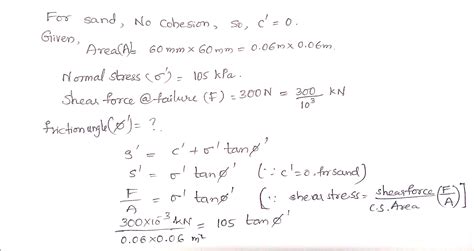 For sand, No Cohesion, So, c' = 0.
Given,
Area(A)= 60mm x 60mm = 0.06m x 0.06m.
Normal stress (σ') = 105 kPa.
Shear force @ failure (F) = 300N = 300/10³ kN
friction angle (ø') = ?.
s' = c' + σ' tanø'
s' = σ' tanø' (∵ c'=0. for sand)
F/A = σ' tanø' [∵ shear stress = shear force/C.S. Area (F/A)]
300x10⁻³ kN/0.06x0.06 m² = 105 tanø'